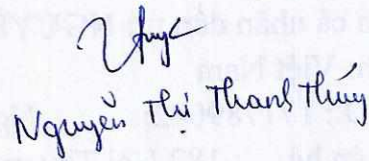 Nguyễn Thị Thanh Thúy